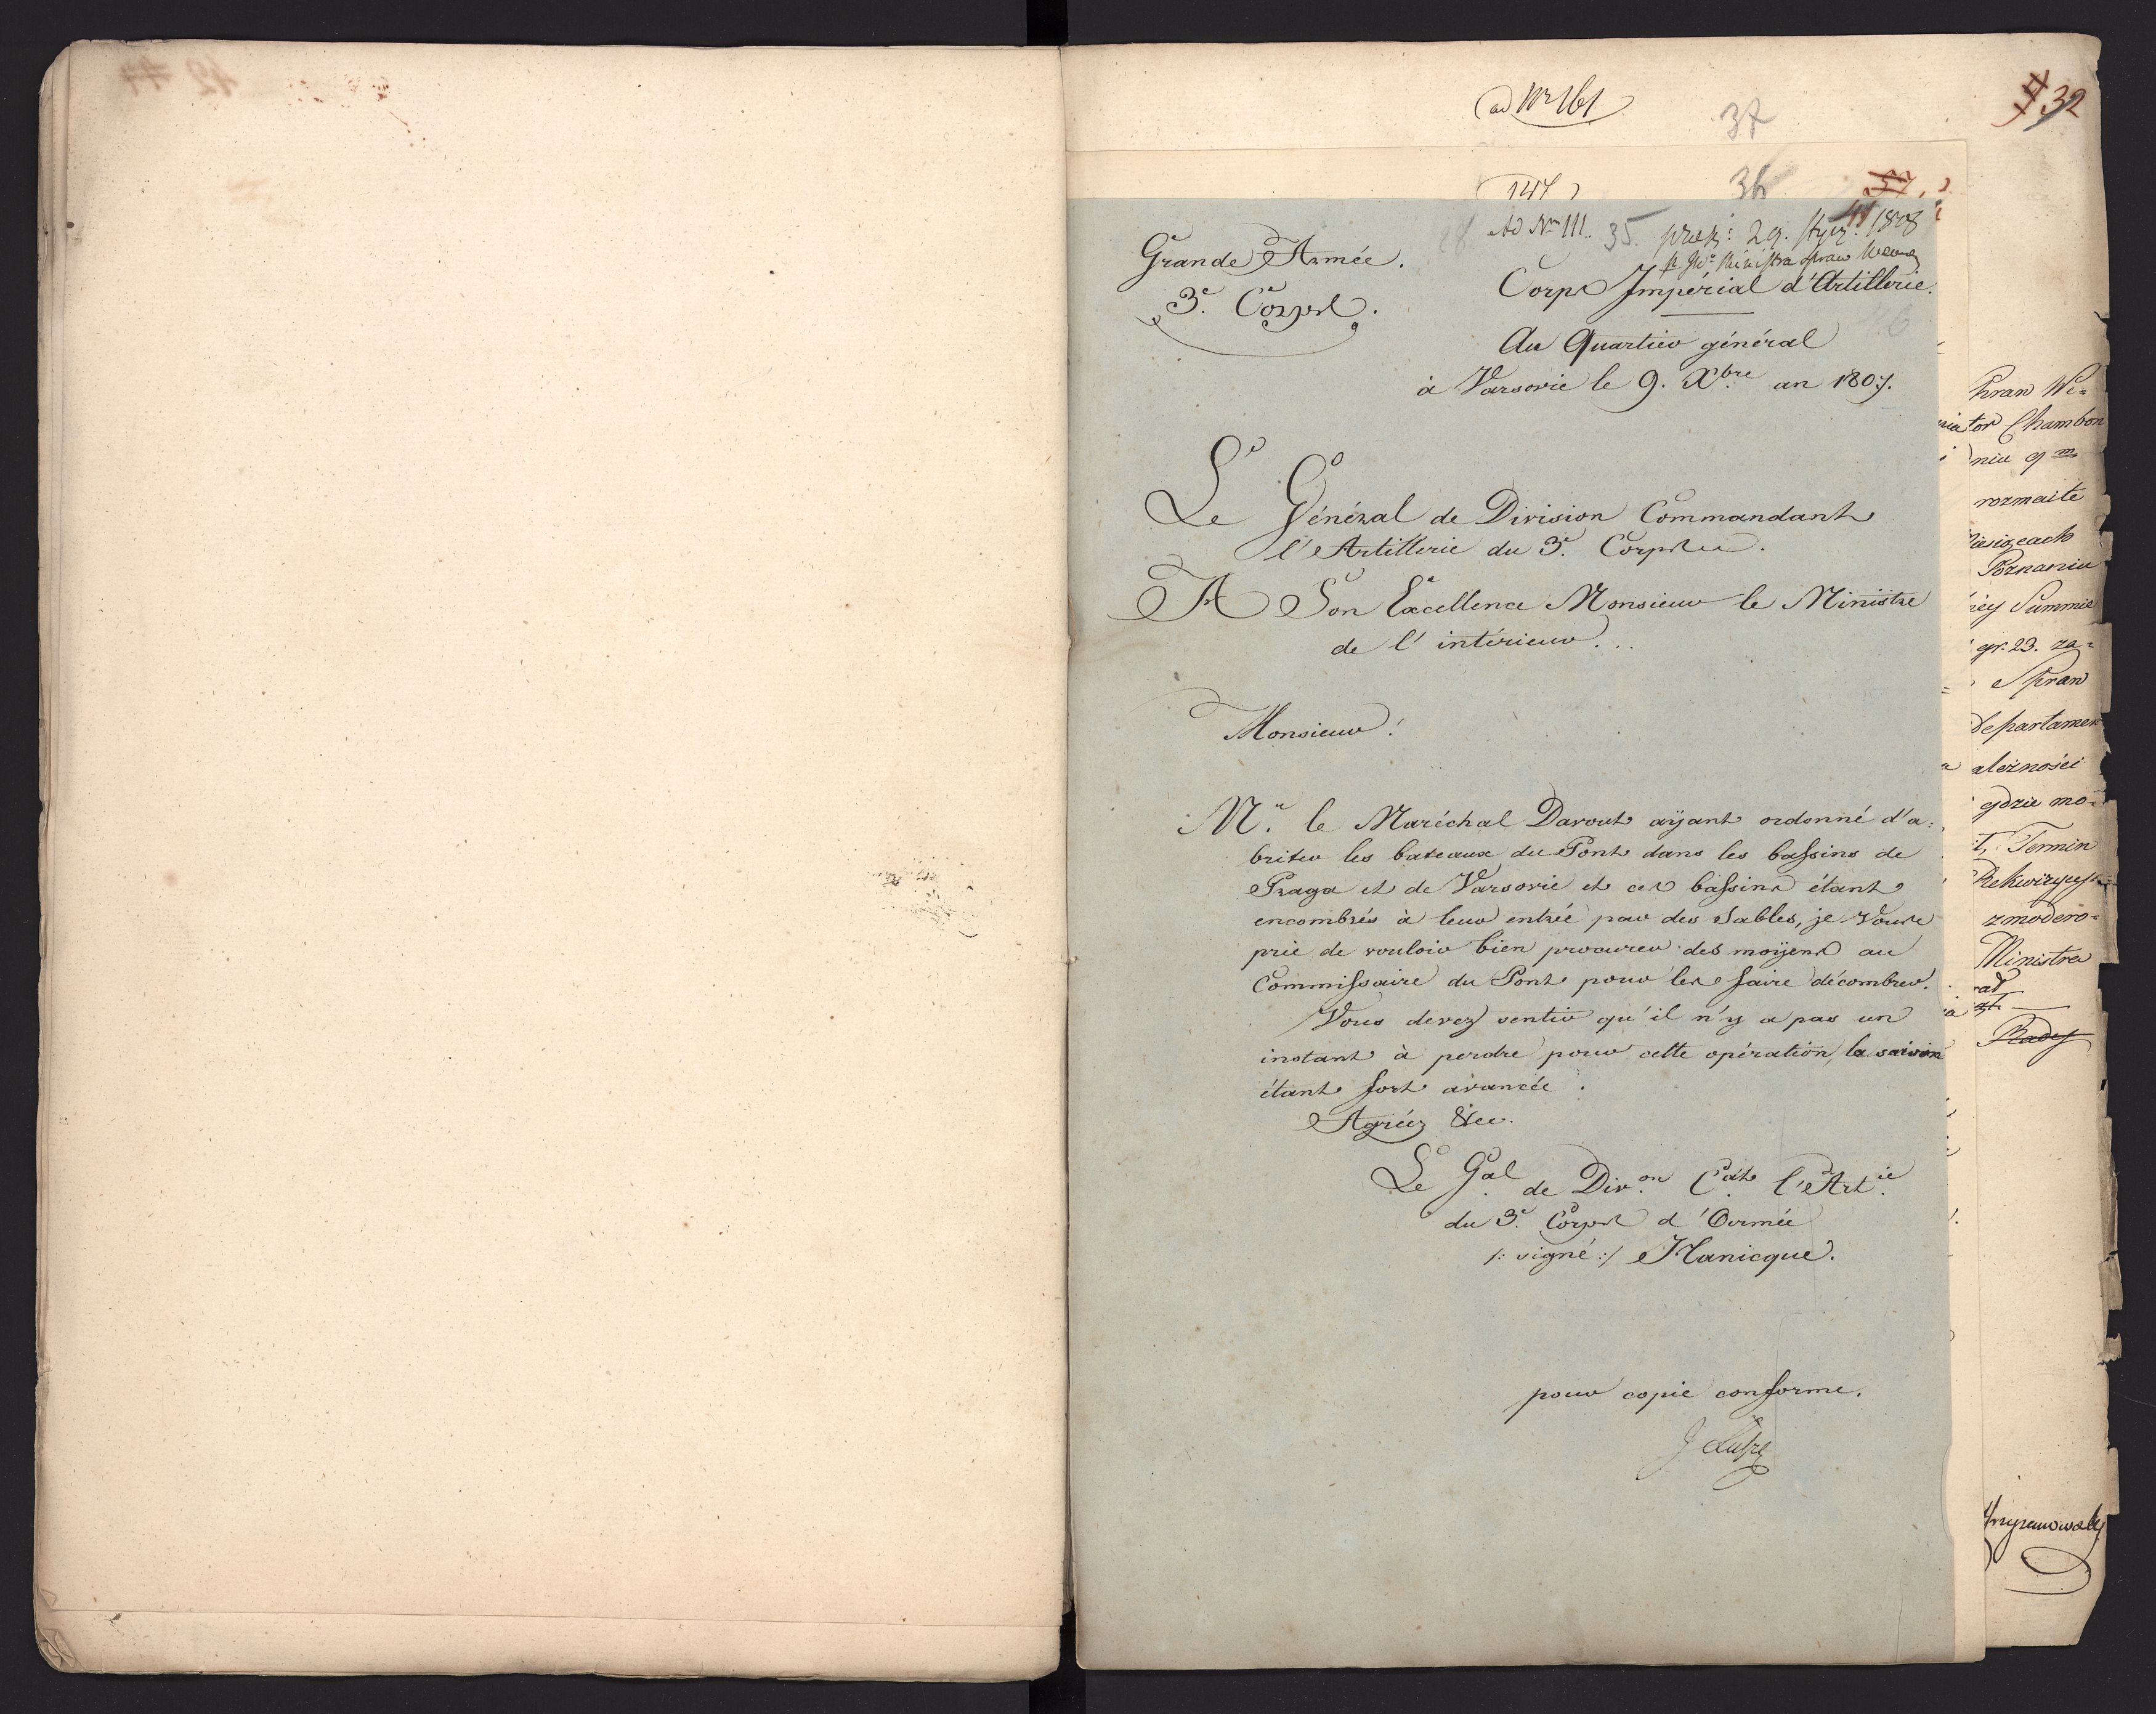 ad Nr 161
37
32
147
36
Ad Nm 111. 35. 29. 1808
Ministra spraw
Grande Armée.
3e. Corps.
Corps Impérial d'Artillerie.
Au Quartier général
à Varsovie le 9. Xbre an 1807.
Le Général de Division Commandant
l'Artillerie du 3e. Corps
A Son Excellence Monsieur le Ministre
de l'intérieur...
Monsieur!
Mr. le Maréchal Davout aÿant ordonné d'a=
briter les bateaux du Pont dans les bassins de
Praga et de Varsovie et ces bassins étant
encombrés à leur entrée par des Sables, je Vous
prie de vouloir bien procurer des moÿens au
Commissaire du Pont pour les faire décombrer.
Vous devez sentir qu'il n'y a pas un
instant à perdre pour cette opération, la saison
étant fort avancée.
Agréez &ec.
Le Gal de Divon Cdt l'Artie
du 3e. Corps d'Armée
/: signé :/ Hanicque.
pour copie conforme.
tor Chambon
niu gm
rozmaite
Poznaniu
Summie
gr. 23. za=
Spraw
departamen
gdzie mo=
Termin
zmodero=
Ministra